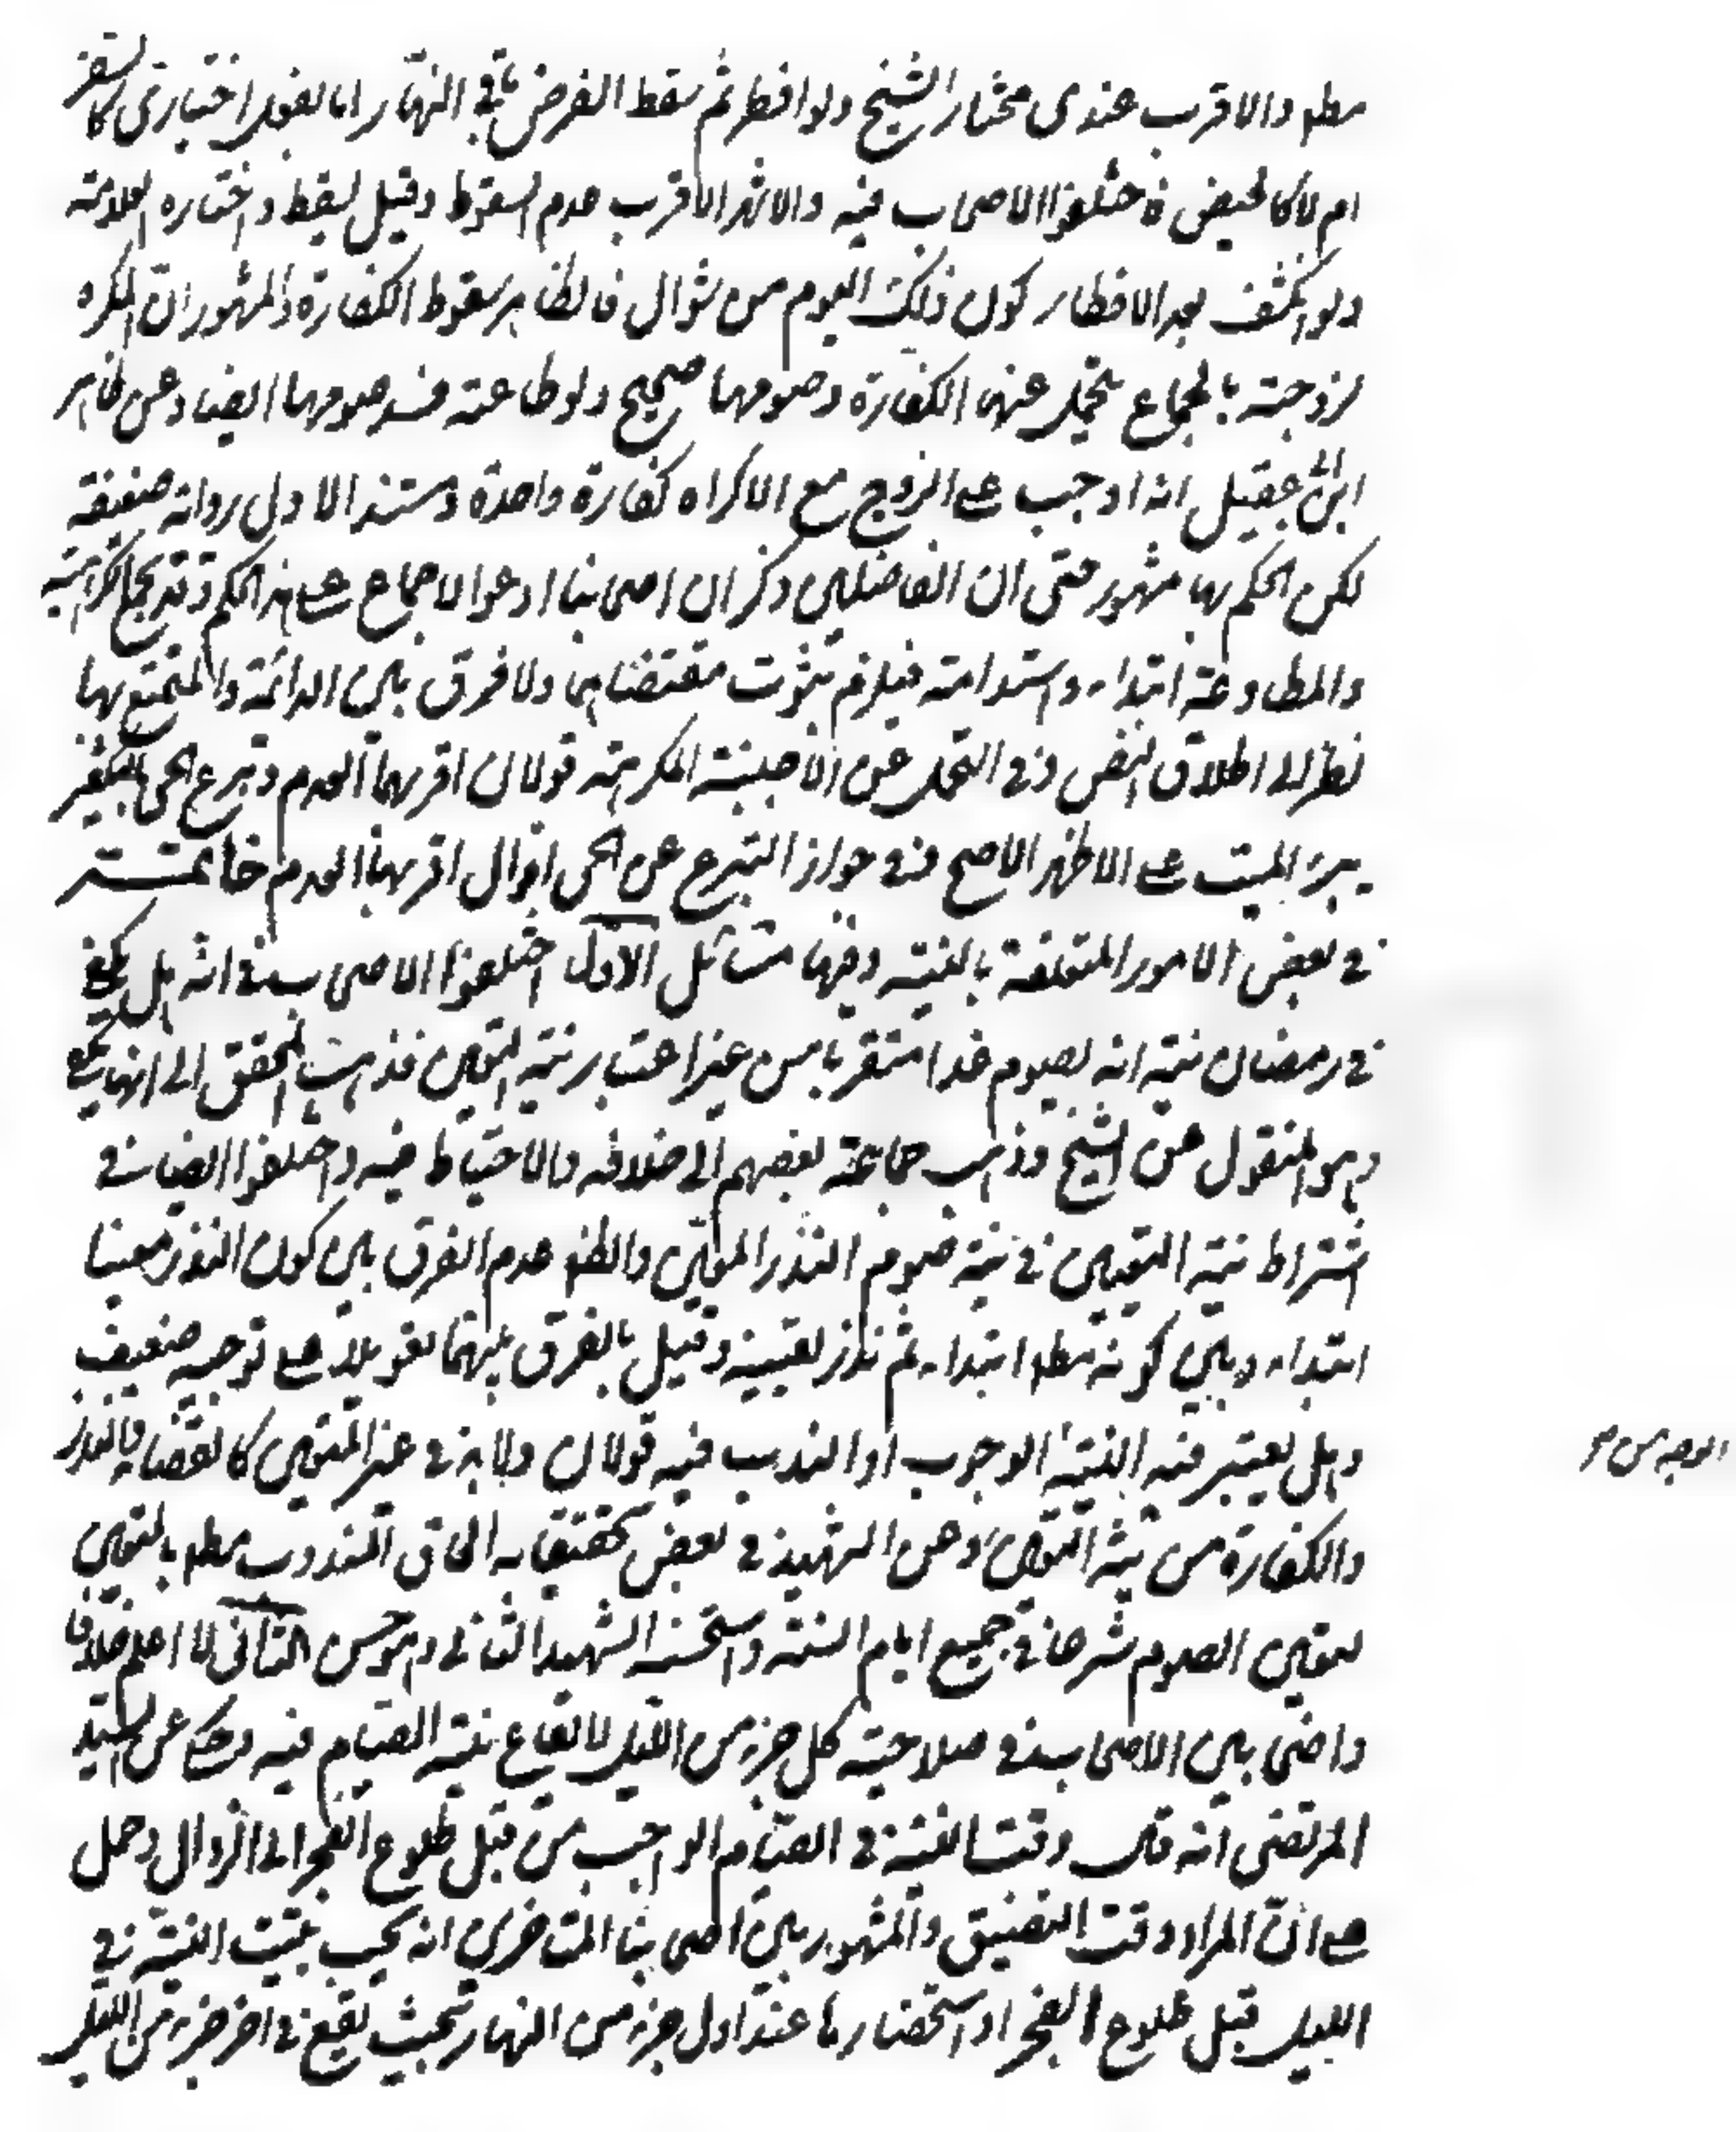 مطلقا والاقرب عندي مختار الشيخ ولو افطر ثم سقط الفرض باقي النهار اما بفعل اختياري كالسفر
ام لا كالحيض فاختلفوا الاصحاب فيه والاشهر الاقرب عدم السقوط وقيل يسقط واختاره العلامة
ولو انكشف بعد الافطار كون ذلك اليوم من شوال فالظاهر سقوط الكفارة والمشهور ان المكره
لزوجته بالجماع يتحمل عنها الكفارة وصومها صحيح ولو طاعته فسد صومها ايضا وعن ظاهر
ابن ابي عقيل انه اوجب على الزوج مع الاكراه كفارة واحدة ومستند الاول رواية ضعيفة
لكن الحكم بها مشهور حتى ان الفاضلين ذكر ان اصحابنا ادعوا الاجماع على هذا الحكم وقد يجامع الاكراه
والمطاوعة ابتداء واستدامة فيلزم ثبوت مقتضاهما ولا فرق بين الدائمة والمتمتع بها
نظرا الى اطلاق النص وفي التحمل عن الاجنبية المكرهة قولان اقربهما العدم وتبرع الحي بالتكفير
يبرئ الميت على الاظهر الاصح وفي جواز التبرع عن الحي اقوال اقربها العدم خاتمة
في بعض الامور المتعلقة بالنية وفيها مسائل الاول اختلفوا الاصحاب في انه هل يكفي
في رمضان نية انه يصوم غدا متقربا من غير اعتبار نية التعيين فذهب المحقق الى انها يكفي
وهو المنقول عن الشيخ وذهب جماعة بعضهم الى خلافه والاحتياط فيه واختلفوا ايضا في
اشتراط نية التعيين في نية صوم النذر المعين والظاهر عدم الفرق بين كون النذر معينا
ابتداء وبين كونه مطلقا ابتداء ثم نذر تعيينه وقيل بالفرق بينهما تعويلا على توجيه ضعيف
وهل يعتبر فيه النية الوجوب او الندب فيه قولان ولا بد في غير المتعين كالقضاء والنذر
الوجه من
والكفارة من نية التعيين وعن الشهيد في بعض تحقيقاته الحاق المندوب مطلقا بالمتعين
لتعين الصوم شرعا في جميع ايام السنة واستحسنه الشهيد الثاني وهو حسن الثاني لا اعلم خلافا
واضحا بين الاصحاب في صلاحية كل جزء من الليل لايقاع نية الصيام فيه وحكي عن السيد
المرتضى انه قال وقت النية في الصيام الواجب من قبل طلوع الفجر الى الزوال وحمل
على ان المراد وقت التضييق والمشهور بين اصحابنا المتاخرين انه يجب تبييت النية في
الليل قبل طلوع الفجر او استحضارها عند اول جزء من النهار بحيث تقع في اخر جزء من الليل